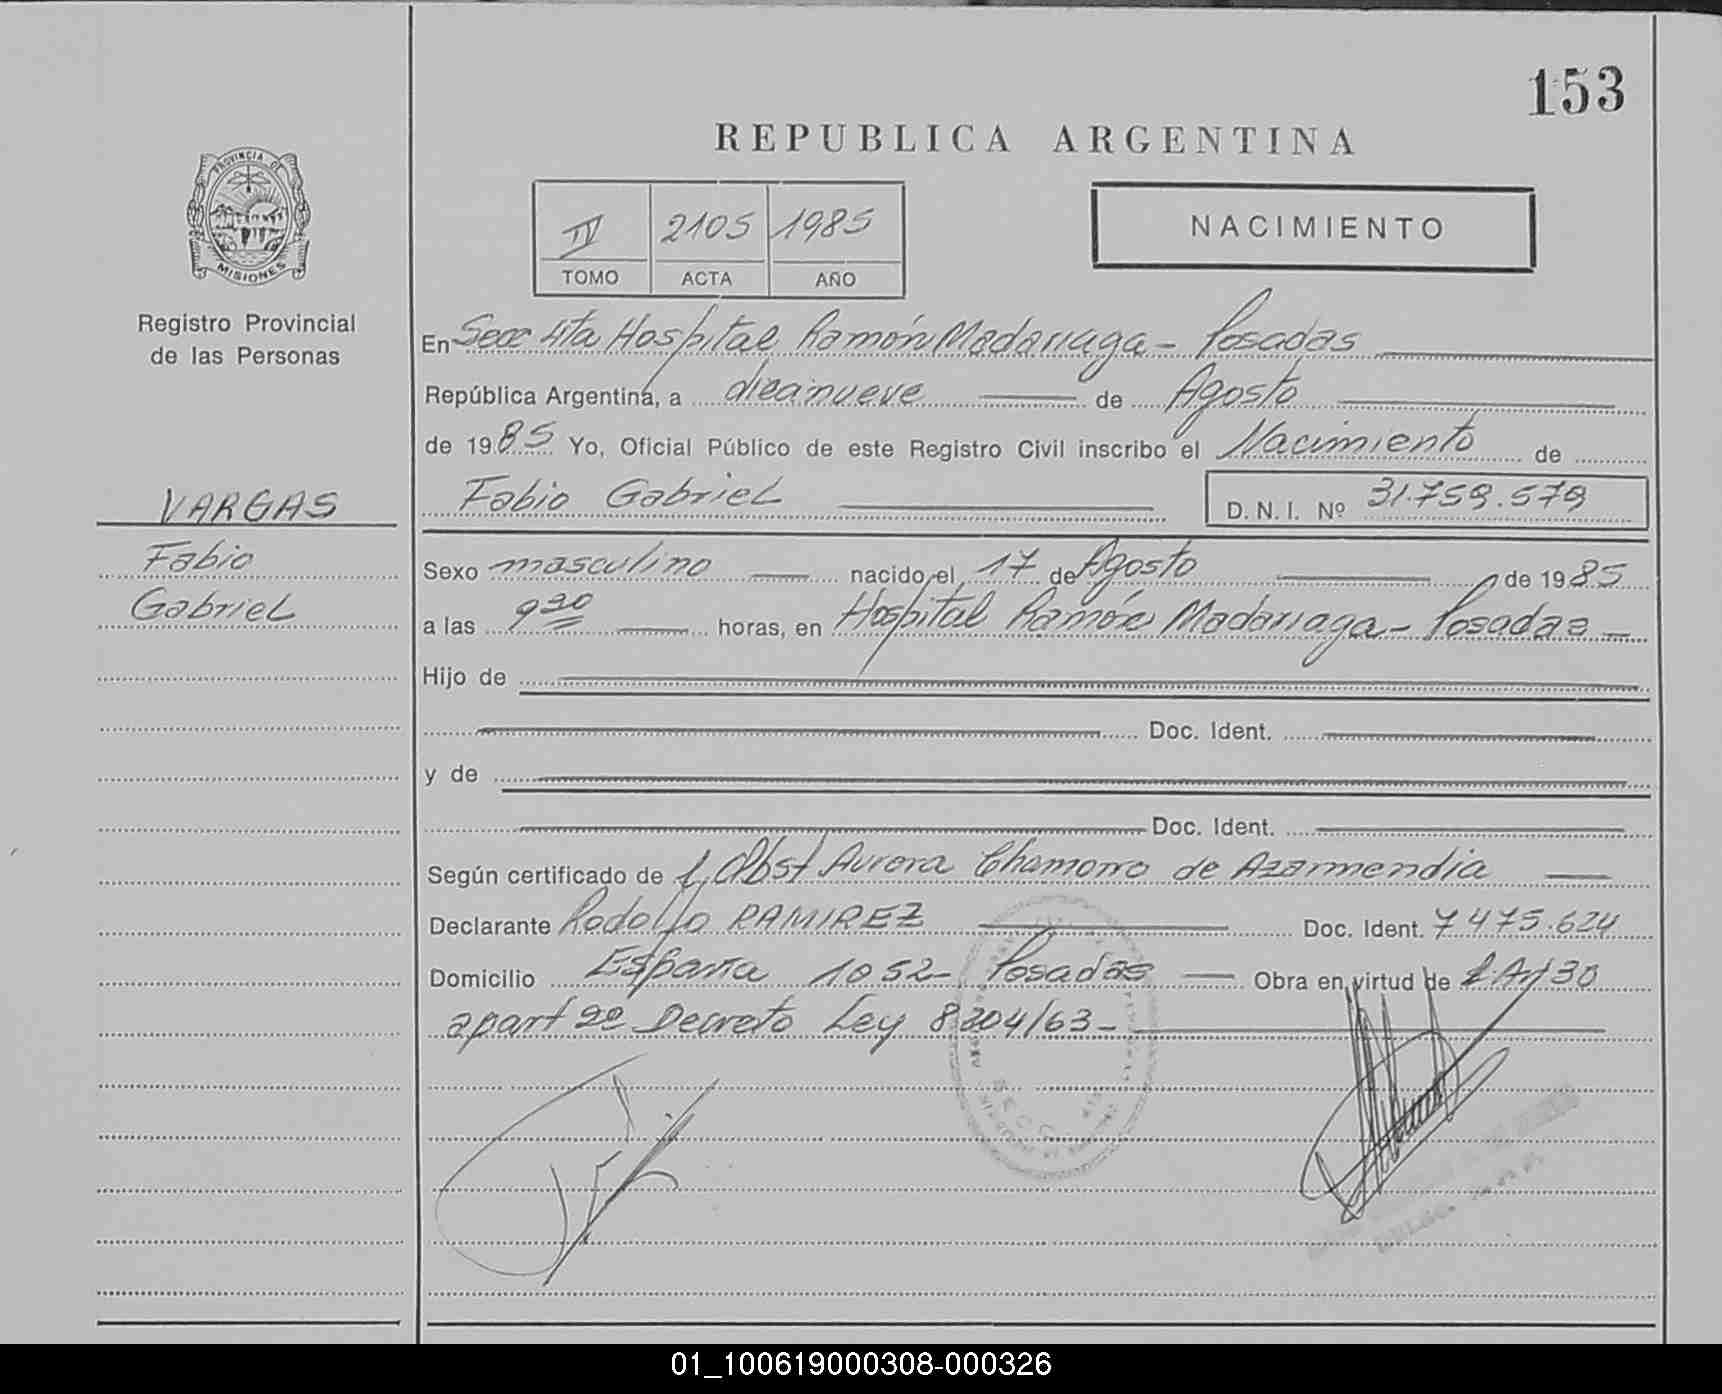 153
REPUBLICA ARGENTINA
PROVINCIA DE
MISIONES
Registro Provincial
de las Personas
IV 2105 1985
TOMO ACTA AÑO
NACIMIENTO
En Secc 4ta Hospital Ramón Madariaga - Posadas
República Argentina, a diecinueve de Agosto
de 1985 Yo, Oficial Público de este Registro Civil inscribo el Nacimiento de
Fabio Gabriel D. N. I. Nº 31.759.579
VARGAS
Fabio
Gabriel
Sexo masculino nacido el 17 de Agosto de 1985
a las 9 30 horas, en Hospital Ramón Madariaga - Posadas
Hijo de
Doc. Ident.
y de
Doc. Ident.
Según certificado de l, Obst Aurora Chamorro de Azarmendia
Declarante Rodolfo RAMIREZ Doc. Ident. 7475.624
Domicilio España 1052 Posadas Obra en virtud de l. Art 30
apart 2º Decreto Ley 8204/63 -
01_100619000308-000326